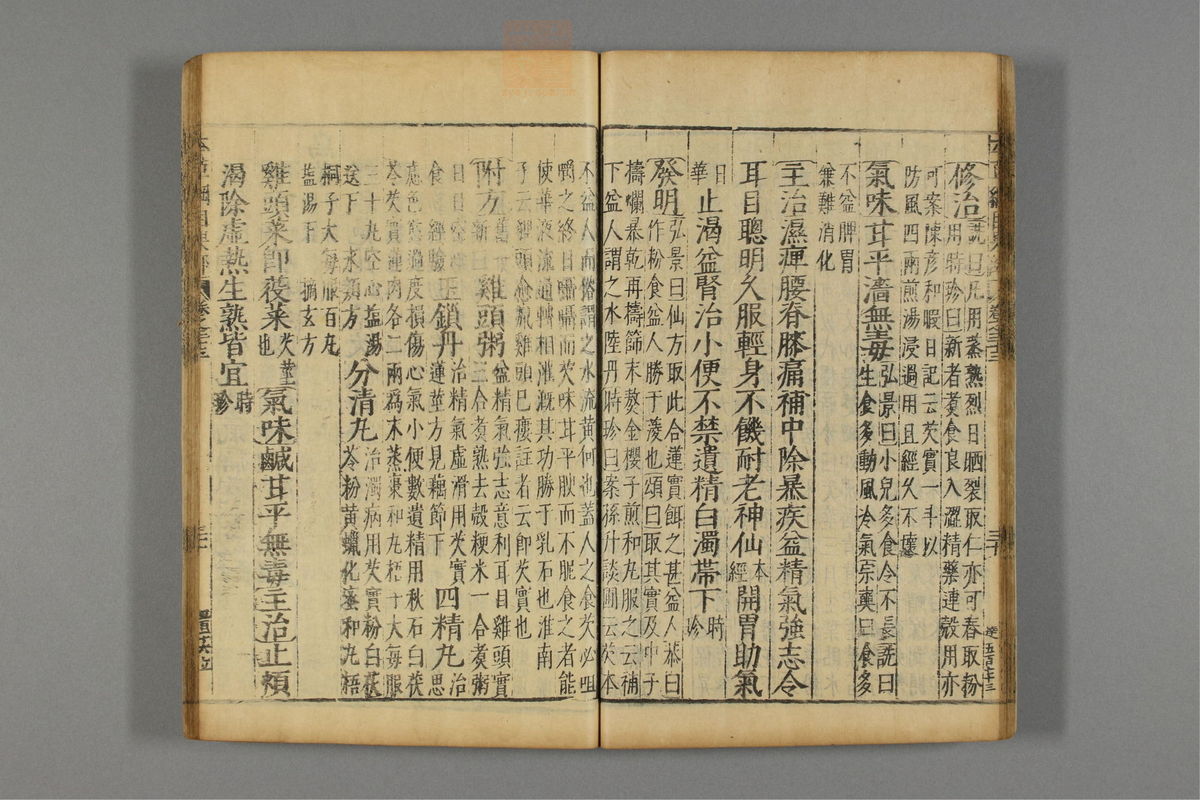 修治詵曰凡用蒸熟烈日晒裂取仁亦可舂取粉
用時珍曰新者煑食良入澀精藥連殼用亦
可案陳彥和暇日記云芡實一斗以
防風四兩煎湯浸過用且經久不壞
氣味甘平濇無毒弘景曰小兒多食令不長詵曰
生食多動風冷氣宗奭曰食多
不益脾胃
兼難消化
主治濕痺腰脊膝痛補中除暴疾益精氣強志令
耳目聰明久服輕身不饑耐老神仙本經開胃助氣
日華止渴益腎治小便不禁遺精白濁帶下時珍
發明弘景曰仙方取此合蓮實餌之甚益人恭曰
作粉食益人勝于菱也頌曰取其實及中子
擣爛暴乾再擣篩末熬金櫻子煎和丸服之云補
下益人謂之水陸丹時珍曰案孫升談圃云芡本
不益人而俗謂之水流黄何也蓋人之食芡必咀
嚼之終日囁囁而芡味甘平腴而不膩食之者能
使華液流通轉相灌溉其功勝于乳石也淮南
子云貍頭愈癙雞頭已瘻註者云即芡實也
附方舊新雞頭粥益精氣強志意利耳目雞頭實
三合煑熟去殼粳米一合煑粥
日日空心
食經驗玉鎖丹治精氣虛滑用芡實
蓮莖方見藕節下四精丸治思
慮色慾過度損傷心氣小便數遺精用秋石白茯
苓芡實蓮肉各二兩爲末蒸棗和丸梧子大每服
三十丸空心盐湯
送下永類方分清丸治濁病用芡實粉白茯
苓粉黄蠟化蜜和丸梧
桐子大每服百丸
盐湯下摘玄方
雞頭菜即䓈菜芡莖也氣味鹹甘平無毒主治止煩
渴除虛熱生熟皆宜時珍